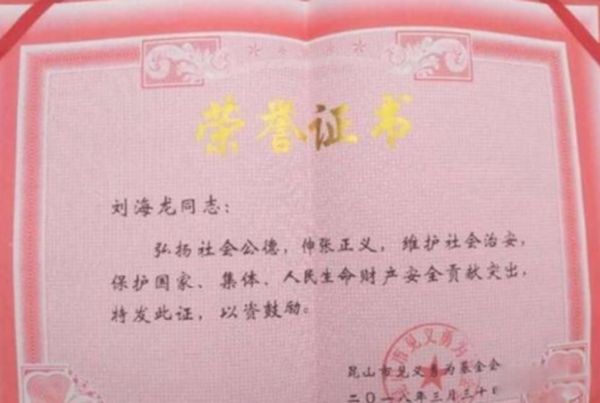 荣誉证书
刘海龙同志：
弘扬社会公德，伸张正义，维护社会治安，
保护国家、集体、人民生命财产安全贡献突出，
特发此证，以资鼓励。
昆山市见义勇为基金会
二〇一八年三月三十日